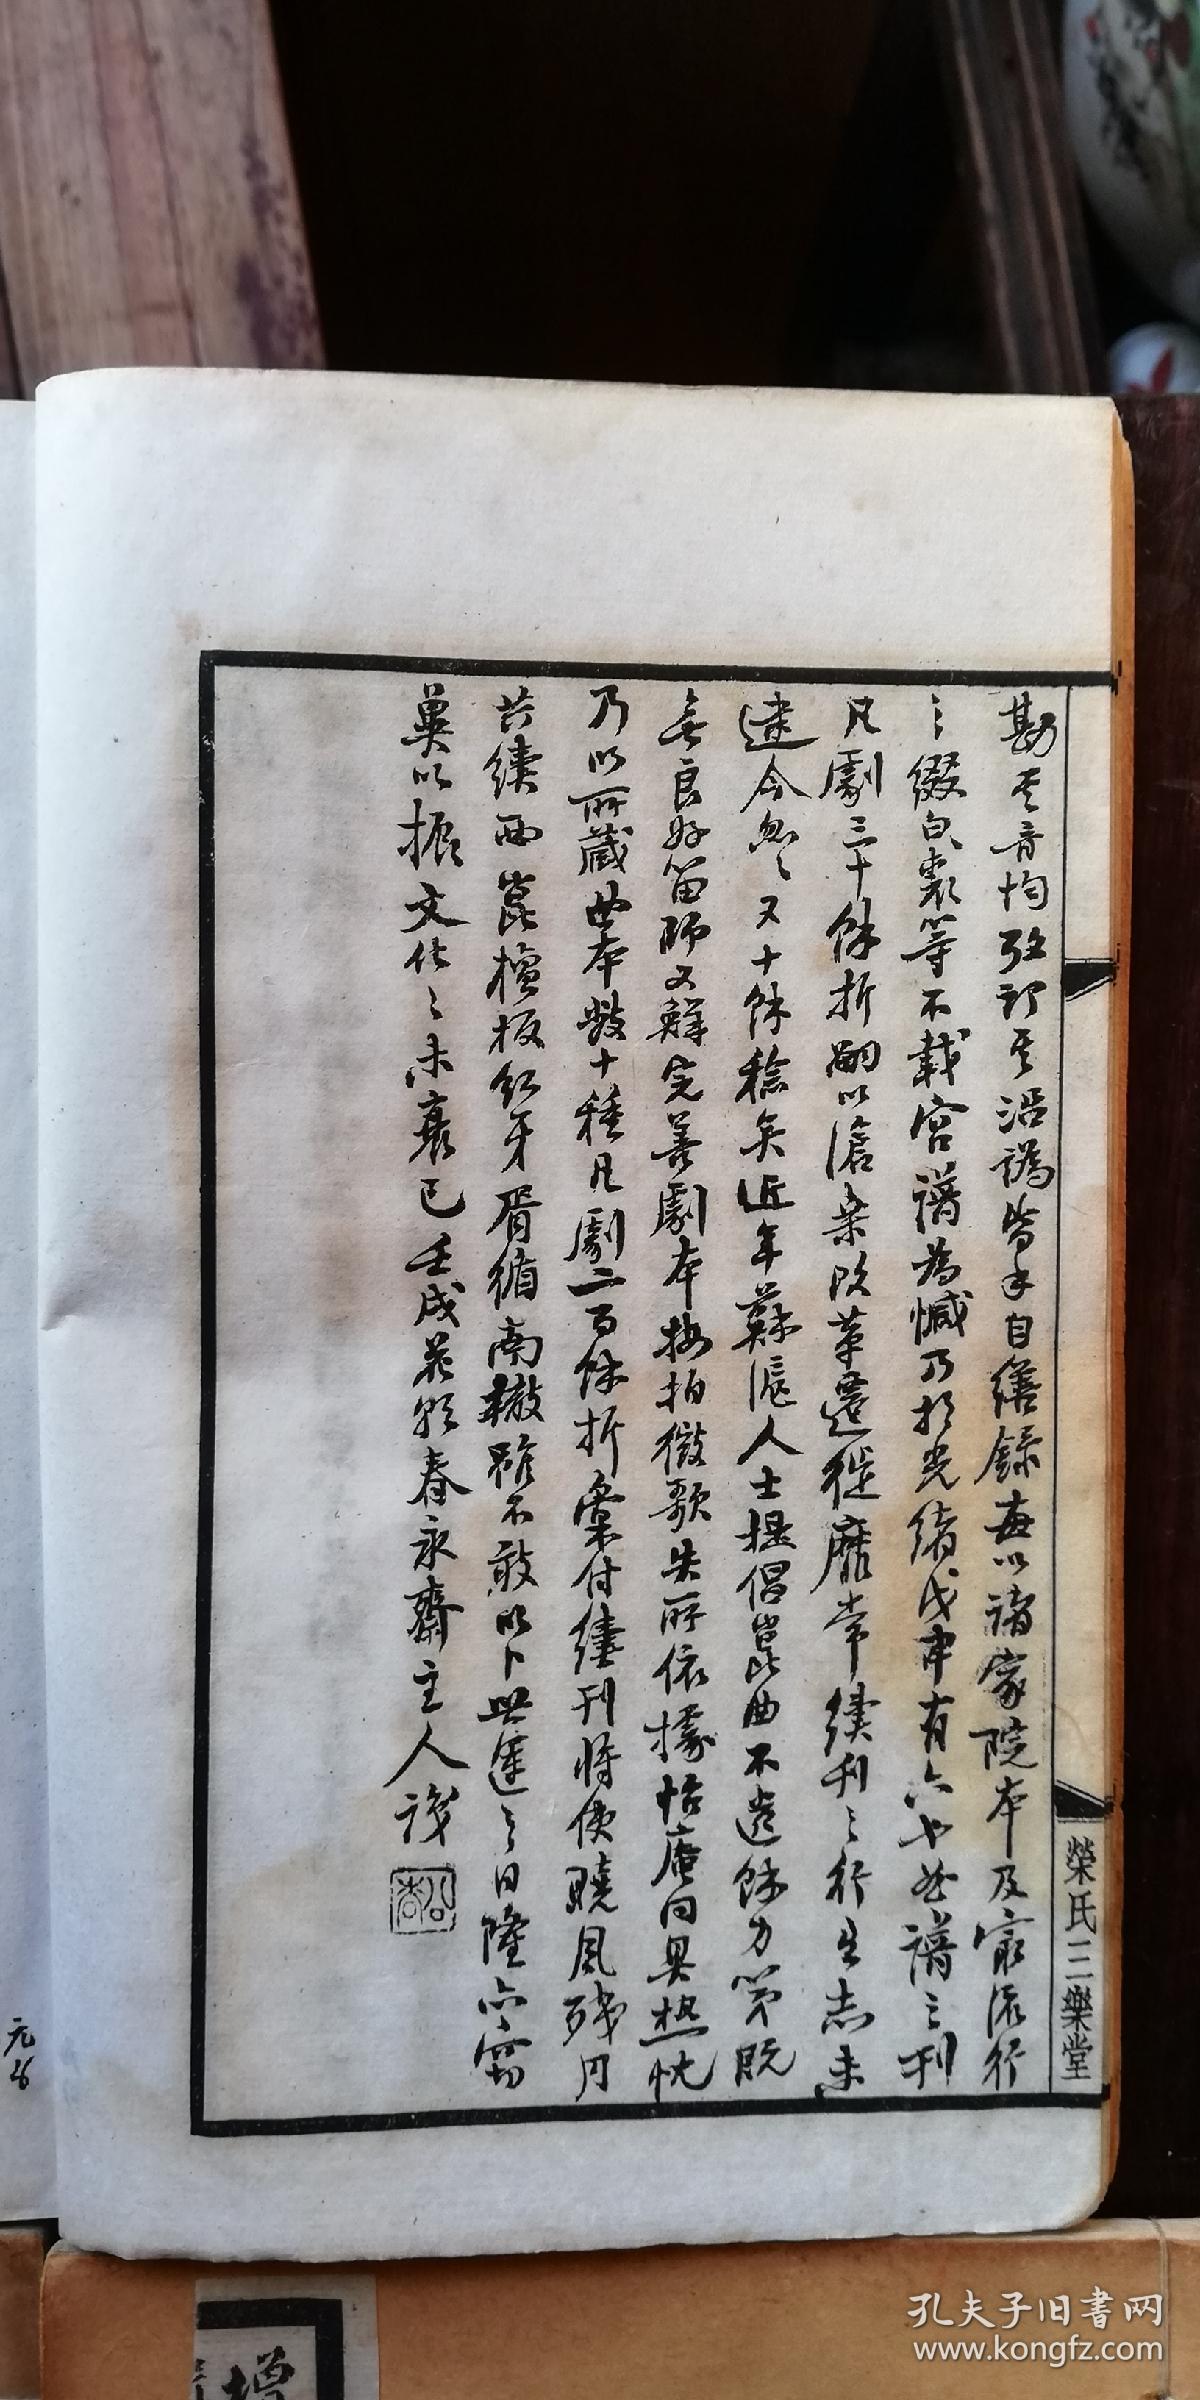 勘其音均弦訂其沿譌皆手自繕錄每以諸家院本及家流行
之綴白裘等不載宮譜為憾乃於光緒戊申有六也曲譜之刊
凡劇三十餘折嗣以滄桑改革遷徙靡常續刊之行生志未
逮今忽忽又十餘稔矣近年蘇滬人士提倡崑曲不遺餘力第既
無良好笛師又鮮完善劇本按拍徵歌失所依據怡庵同具熱忱
乃以所藏曲本數十種凡劇二百餘折彙付續刊將使曉風殘月
共續西崑檀板紅牙胥循南轍雖不敢以卜世運之日隆亦竊
冀以振文化之未衰已壬戌花朝春永齋主人識
榮氏三樂堂
增
孔夫子旧书网
www.kongfz.com